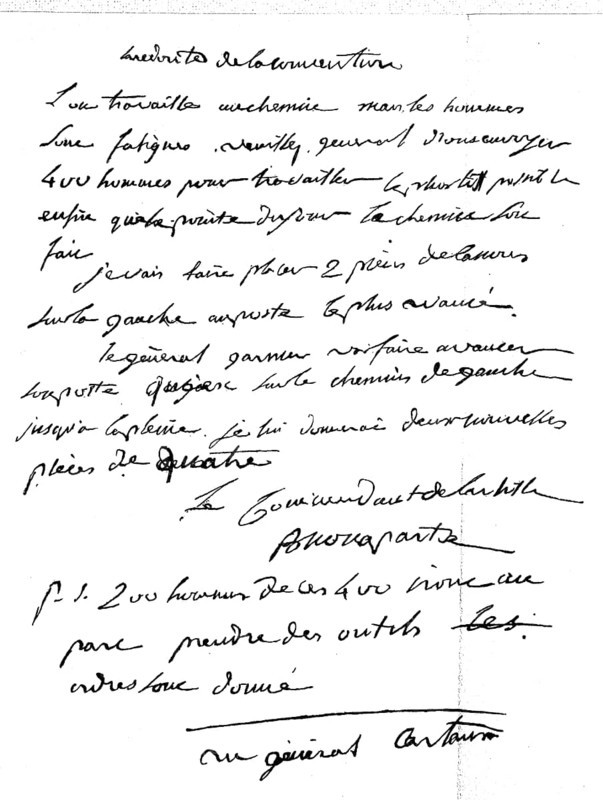 redoute de la convention
L'on travaille au chemin mais les hommes
sont fatigués. veuillez, general, nous envoyer
400 hommes pour travailler le plustôt possible
enfin qu'a la pointe du jour le chemin soit
fait
je vais faire placer 2 pièces de canons
sur la gauche au poste le plus avancé.
le général garnier va faire avancer
son poste sur le chemin de gauche
jusqu'a la pleine. je lui donnerai deux nouvelles
pièces de quatre
Le Commandant de l'artille
Buonaparte
p. s. 200 hommes de ces 400 iront au
parc prendre des outils les
ordres sont donné
au général Cartaux